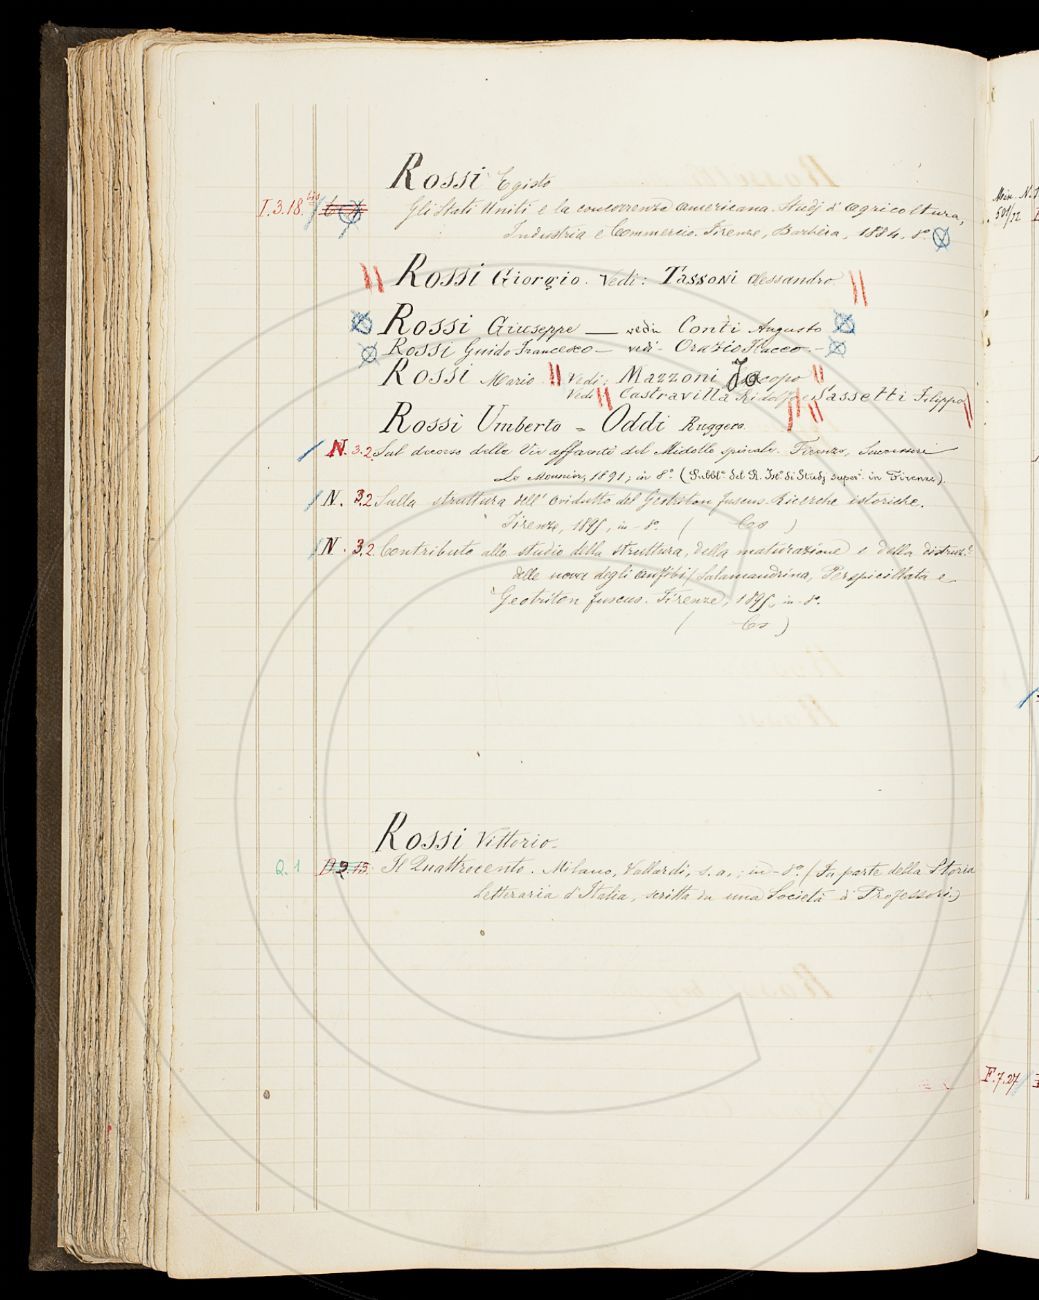 Rossi Egisto
I.3.18. bis
Gli Stati Uniti e la concorrenza americana. Studj d'agricoltura,
Industria e Commercio. Firenze, Barbèra, 1884. 8.°
Rossi Giorgio. Vedi: Tassoni Alessandro.
Rossi Giuseppe — vedi Conti Augusto
Rossi Guido Francesco — vedi - Orazio Flacco. -
Rossi Mario Vedi: Mazzoni Jacopo
Vedi Castravilla Ridolfo e Sassetti Filippo
Rossi Umberto = Oddi Ruggero.
N. 3.2. Sul decorso delle Vie afferenti del Midollo spinale. Firenze, Successori
Le Monnier, 1891; in 8.° (Pubbl. del R. Ist. di Studj super. in Firenze).
N. 3.2 Sulla struttura dell'ovidutto del Geotriton fuscus. Ricerche istoriche.
Firenze, 1895, in-8.° ( Cos )
N. 3.2 Contributo allo studio della struttura, della maturazione e della distruz.e
delle uova degli anfibi (Salamandrina, Perspicillata e
Geotriton fuscus. Firenze, 1895, in-8.°
( Cos )
Rossi Vittorio.
Q.1 D.9.13. Il Quattrocento. Milano, Vallardi, s.a.; in-8.° (Fa parte della Storia
Letteraria d'Italia, scritta da una Società di Professori)
Min. N.
F.7.27